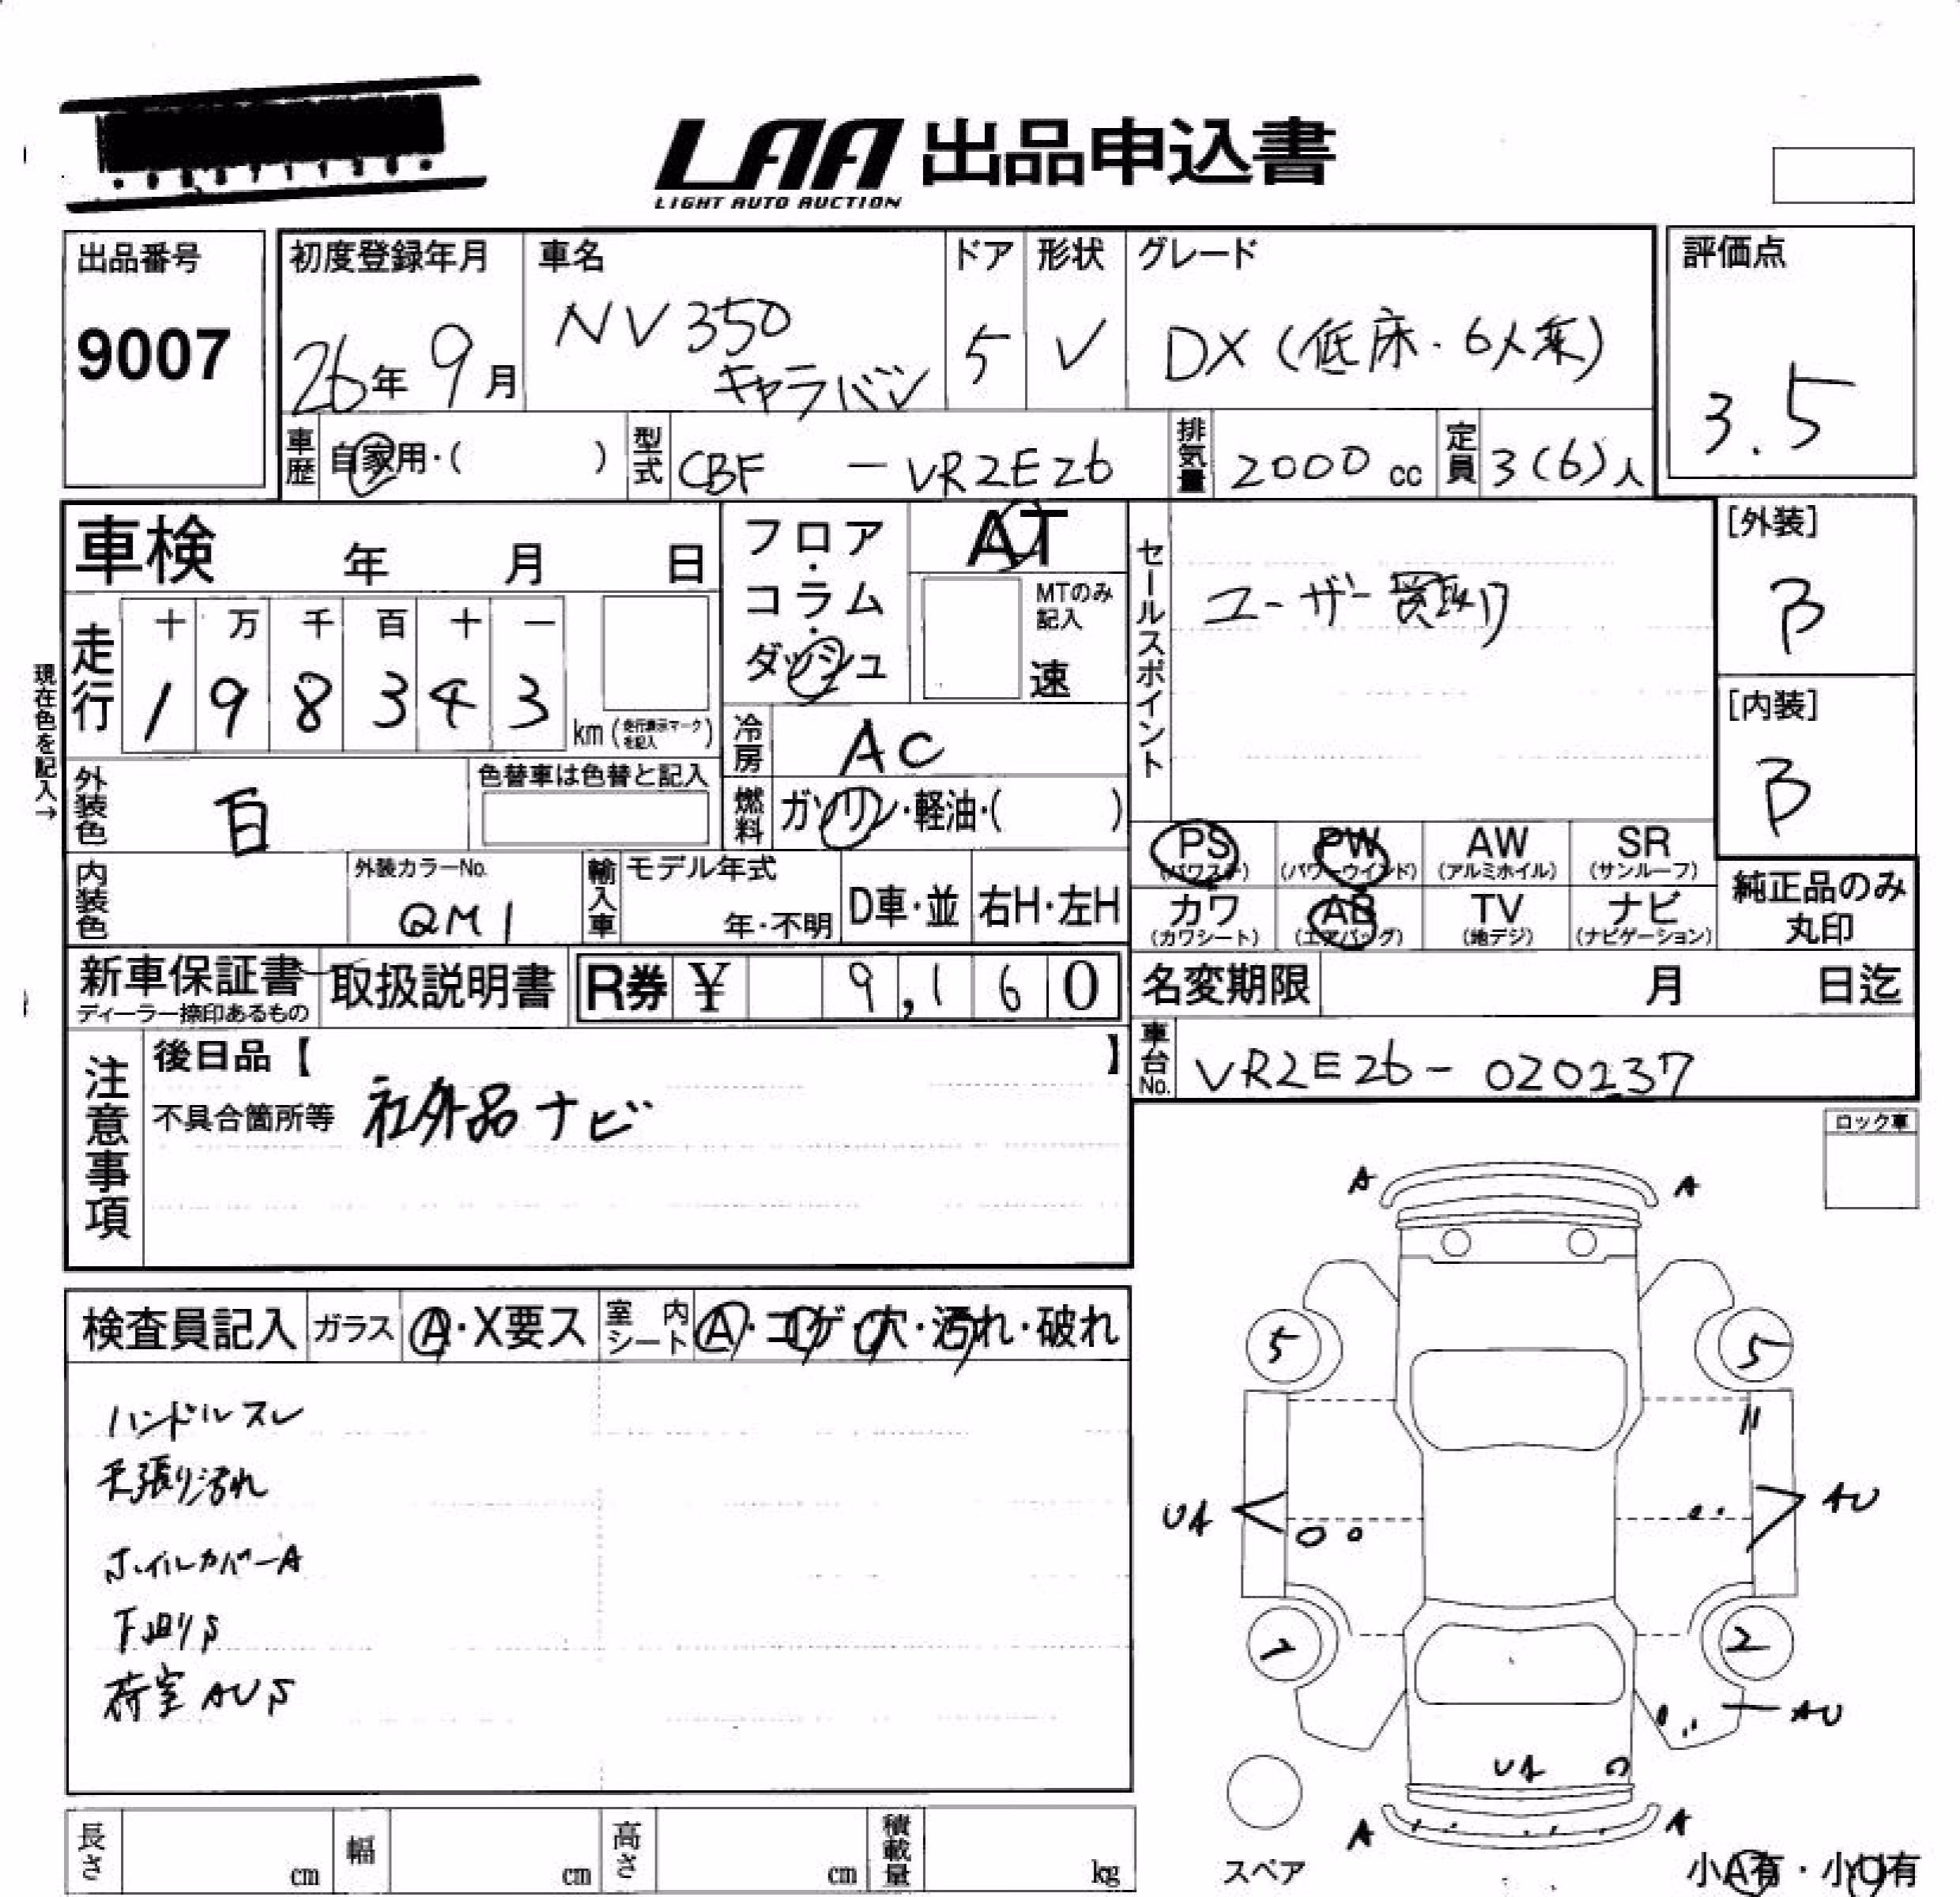 LAA 出品申込書
LIGHT AUTO AUCTION
出品番号
9007
初度登録年月
26年 9月
車名
NV350
キャラバン
ドア
5
形状
V
グレード
DX (低床・6人乗)
評価点
3.5
車歴 自家用・( )
型式 CBF - VR2E26
排気量 2000 cc
定員 3(6)人
車検 年 月 日
現在色を記入→
走行
十 万 千 百 十 一
1 9 8 3 4 3
km(走行表示マークを記入)
フロア・コラム・ダッシュ
AT
MTのみ記入
速
冷房 AC
燃料 ガソリン・軽油・( )
セールスポイント
ユーザー買取り
[外装]
B
[内装]
B
外装色 白
色替車は色替と記入
内装色
外装カラーNo.
QM1
輸入車
モデル年式
年・不明
D車・並
右H・左H
PS (パワステ)
PW (パワーウインド)
AW (アルミホイル)
SR (サンルーフ)
カワ (カワシート)
AB (エアバッグ)
TV (地デジ)
ナビ (ナビゲーション)
純正品のみ
丸印
新車保証書
ディーラー捺印あるもの
取扱説明書
R券 ¥ 9,160
名変期限 月 日迄
車台No. VR2E26-020237
注意事項
後日品【 】
不具合箇所等 社外品ナビ
ロック車
検査員記入
ガラス A・X要ス
室内シート A・コゲ・穴・汚れ・破れ
ハンドルスレ
天張り汚れ
ホイルカバーA
下廻りS
荷室AUS
A A
5 5
UA AU
2 2
AU
UA
A A
スペア
小A有・小U有
長さ cm
幅 cm
高さ cm
積載量 kg